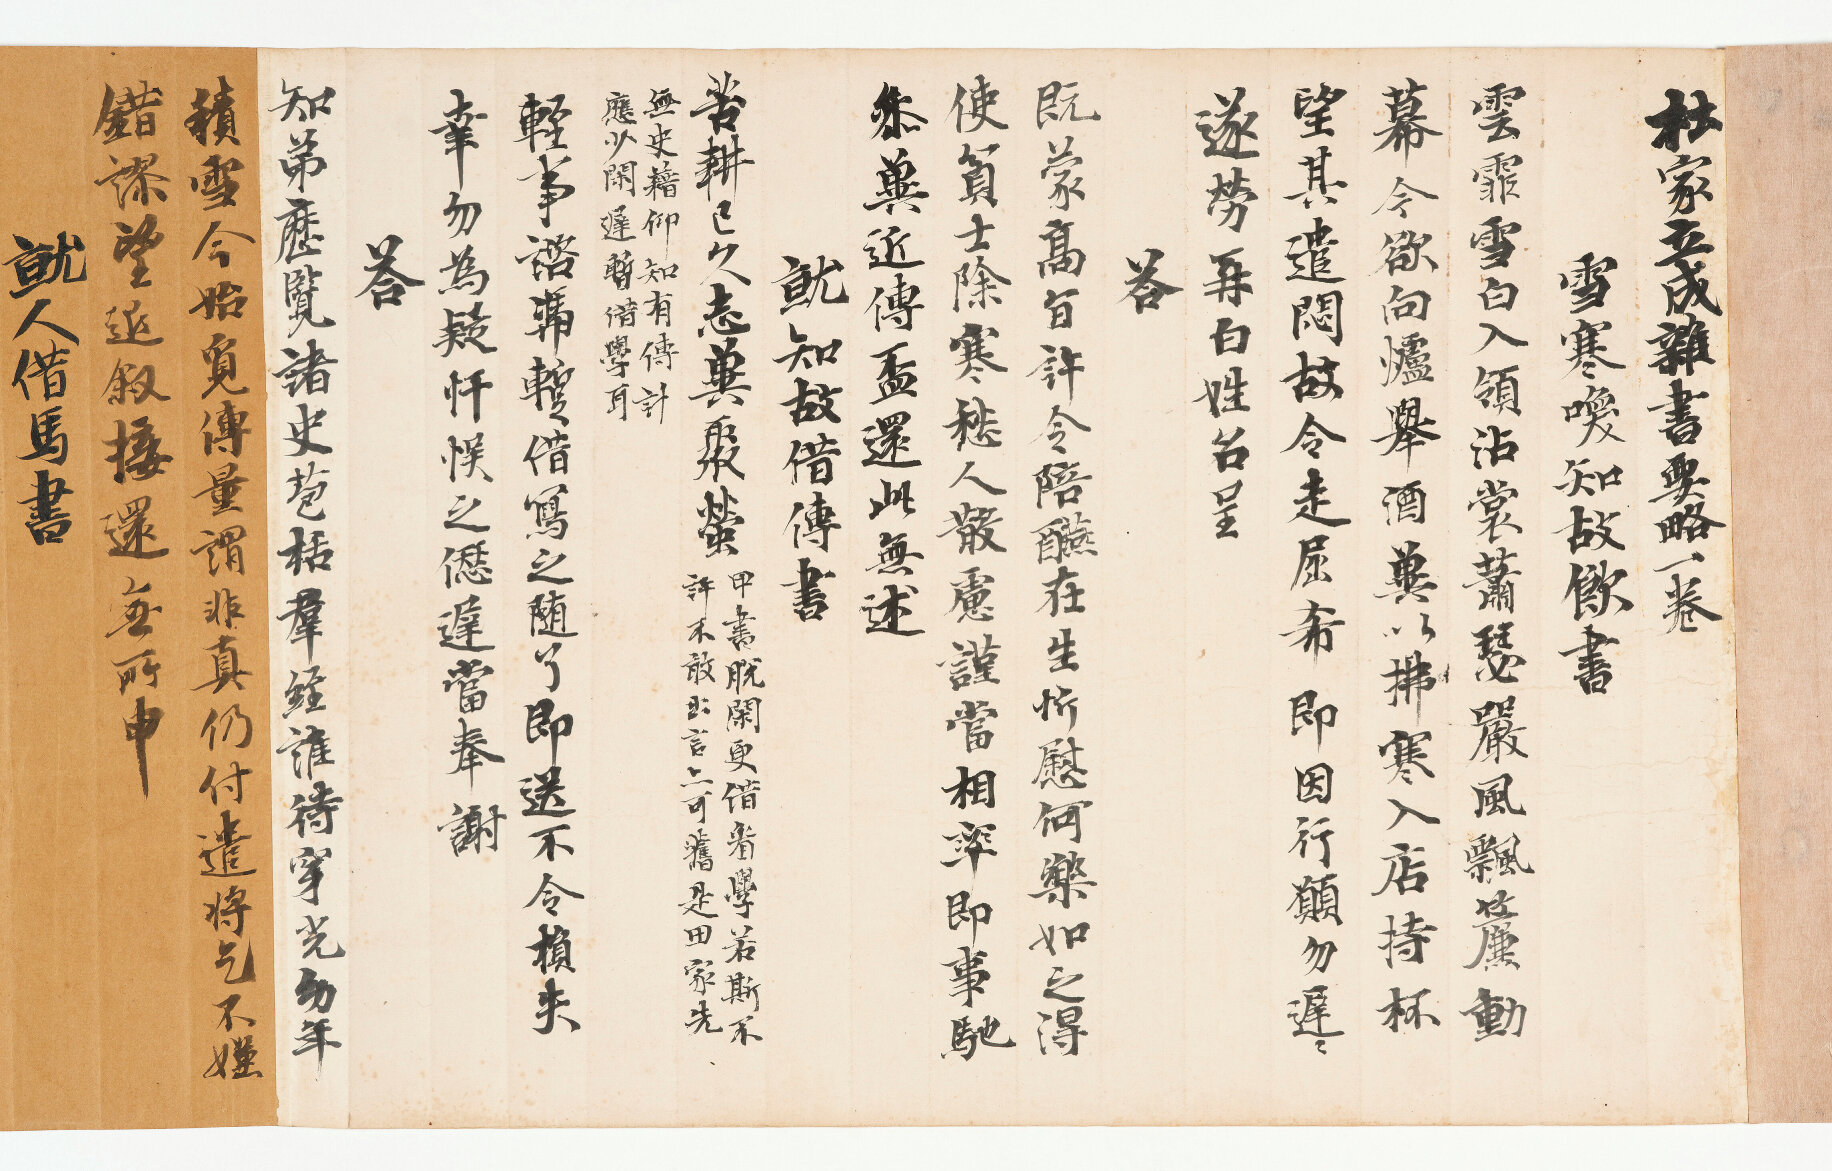 杜家立成雜書要略一卷
雪寒喚知故飲書
雲霏雪白入領沾裳蕭瑟嚴風飄簾動
幕今欲向爐舉酒冀以拂寒入店持杯
望其遣悶故令走屈希即因行願勿遲〻
遂勞再白姓名呈
答
既蒙高旨許令陪醼在生忻慰何樂如之得
使貧士除寒愁人散慮謹當相率即事馳
忝冀近傳盃還此無述
就知故借傳書
苦耕已久志冀聚螢
甲書脱閑更借看學若斯不
許不敢出言亦可舊是田家先
無史籍仰知有傳計
應少閑遲暫借學耳
輕事諮歸暫借寫之随了即送不令損失
幸勿為疑忏悮之僁遲當奉謝
答
知弟歷覽諸史苞括羣經誰待穿光幼年
積雪今始覓傳量謂非真仍付遣將乞不嫌
錯謬望近叙接還無所申
就人借馬書